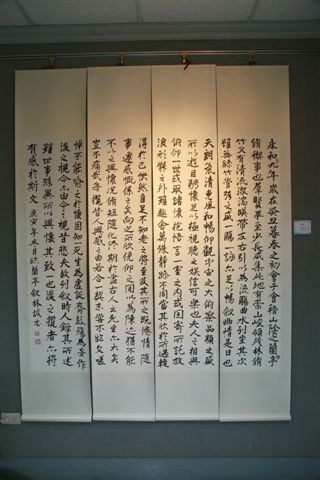 永和九年歲在癸丑暮春之初會于會稽山陰之蘭亭
脩稧事也群賢畢至少長咸集此地有崇山峻領茂林脩
竹又有清流激湍暎帶左右引以為流觴曲水列坐其次
雖無絲竹管弦之盛一觴一詠亦足以暢叙幽情是日也
天朗氣清惠風和暢仰觀宇宙之大俯察品類之盛
所以遊目騁懷足以極視聽之娛信可樂也夫人之相與
俯仰一世或取諸懷抱悟言一室之內或因寄所託放
浪形骸之外雖趣舍萬殊靜躁不同當其欣於所遇暫
得於己怏然自足不知老之將至及其所之既惓情隨
事遷感慨係之矣向之所欣俛仰之間以為陳迹猶不能
不以之興懷況脩短隨化終期於盡古人云死生亦大矣
豈不痛哉每攬昔人興感之由若合一契未嘗不臨文嗟
悼不能喻之於懷固知一死生為虛誕齊彭殤為妄作
後之視今亦由今之視昔悲夫故列叙時人錄其所述
雖世事殊異所以興懷其致一也後之攬者亦將
有感於斯文 庚寅年冬月 蘭亭叙林